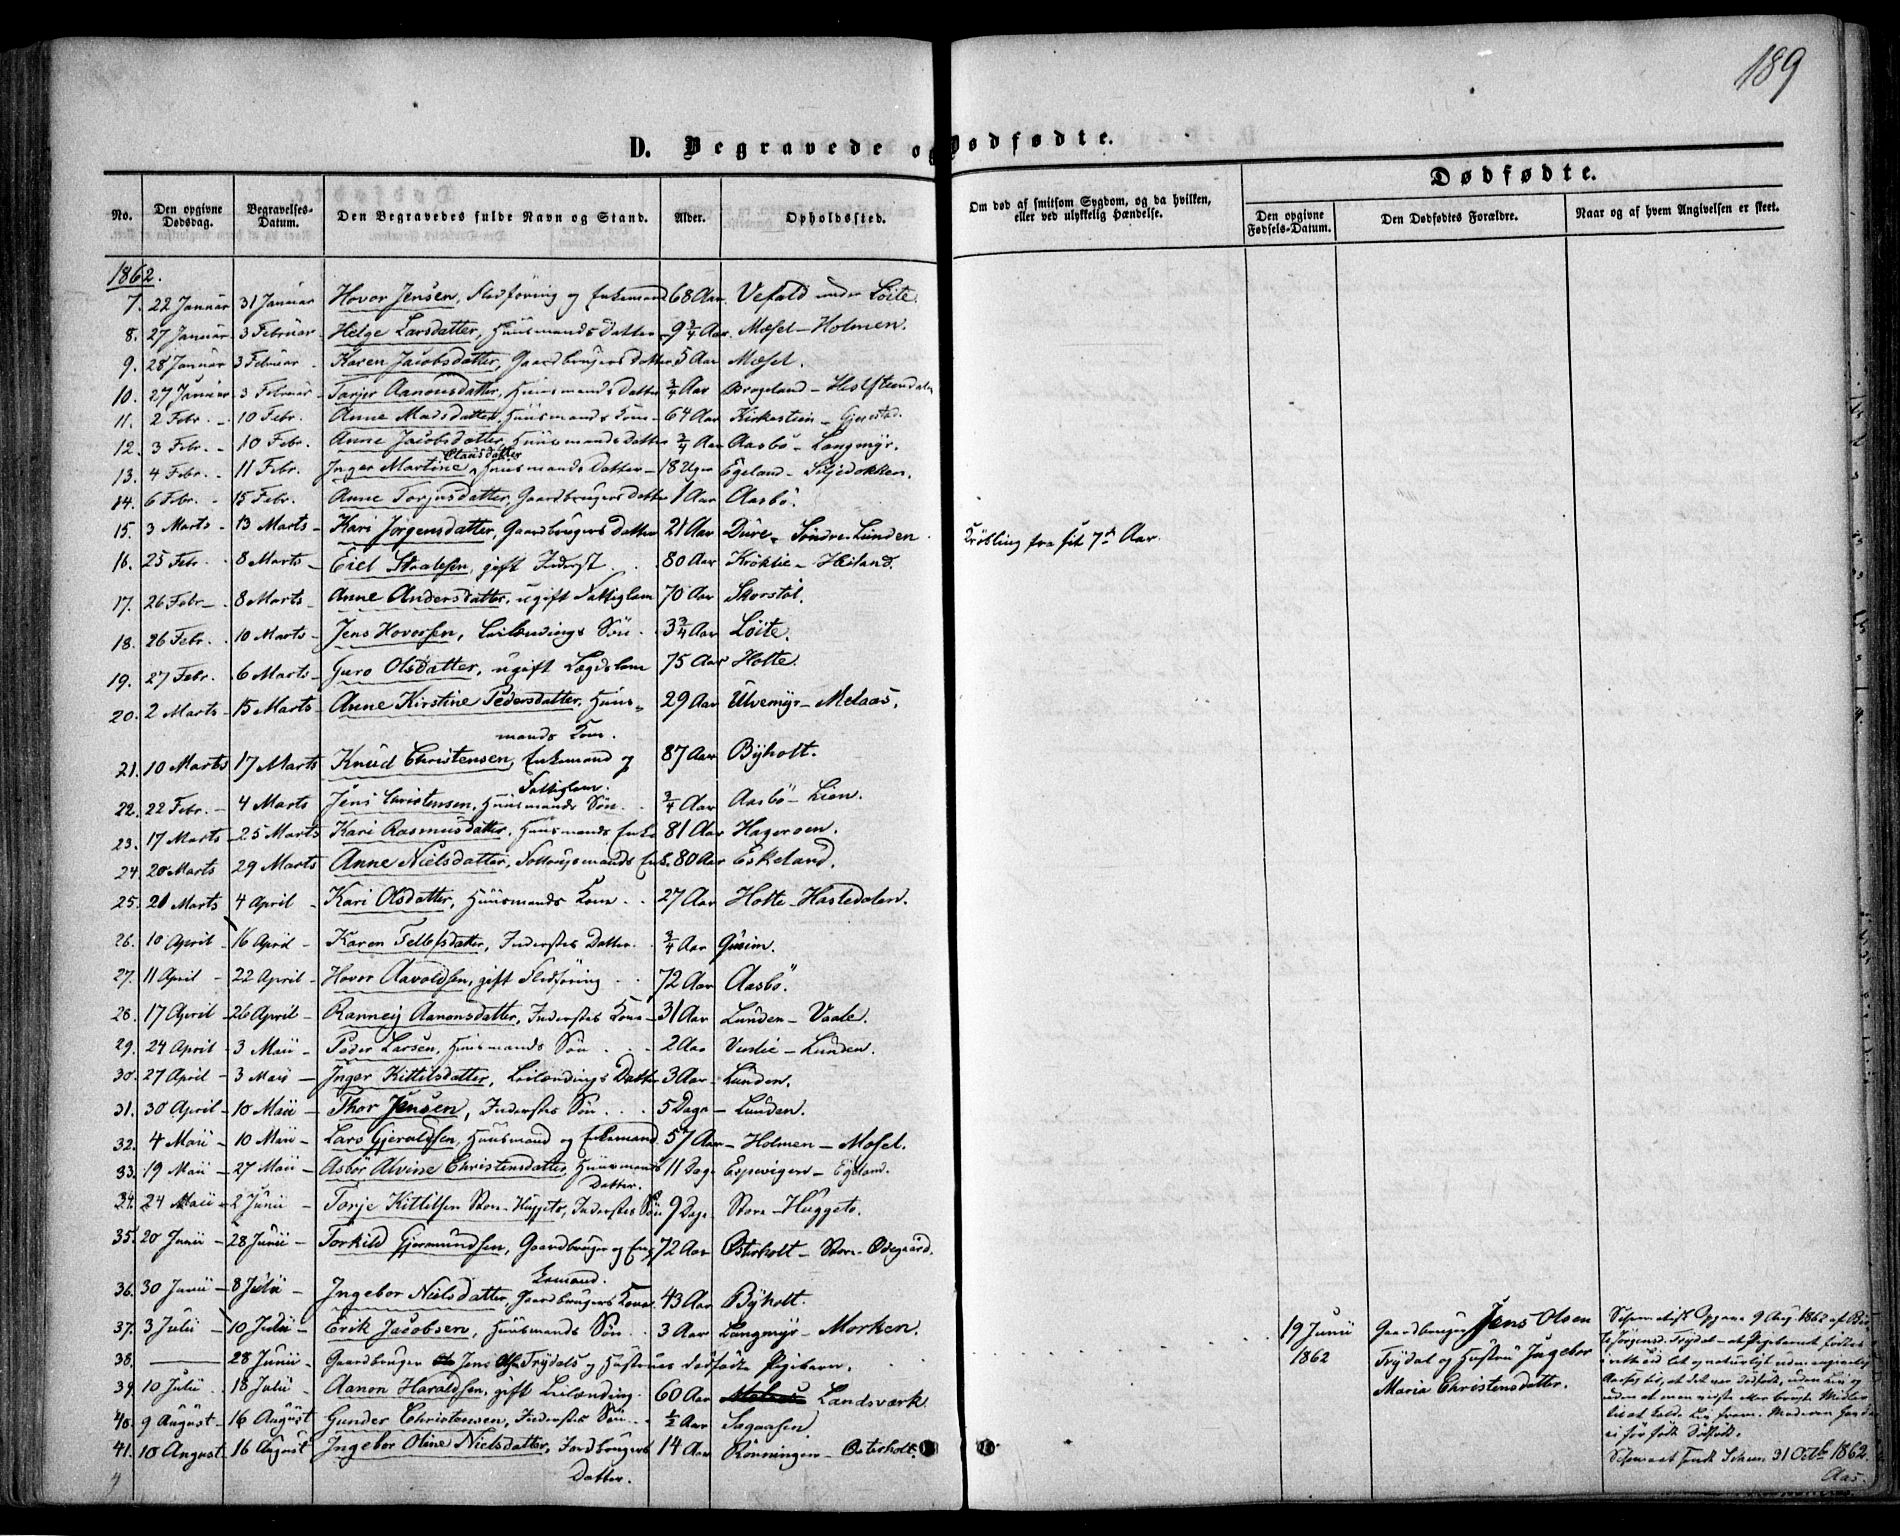 189
D. Begravede og Dødfødte.
Dødfødte.
No. Den opgivne Dødsdag. Begravelses-Datum. Den Begravedes fulde Navn og Stand. Alder. Opholdssted. Om død af smitsom Sygdom, og da hvilken, eller ved ulykkelig Hændelse. Den opgivne Fødsels-Datum. Den Dødfødtes Forældre. Naar og af hvem Angivelsen er skeet.
1862.
7. 22 Januar 31 Januar Hovor Jensen, Fledføring og Enkemand 68 Aar Vefald under Löite.
8. 27 Januar 3 Februar Helge Larsdatter, Huusmands Datter 9 3/4 Aar. Mæsel - Holmen.
9. 28 Januar 3 Februar Karen Jacobsdatter, Gaardbrugers datter 5 Aar Mæsel.
10. 27 Januar 3 Februar Tarjer Aanonsdatter, Huusmands Datter 3/4 Aar Brøgeland - Holsteendalen
11. 2 Febr. 10 Febr. Anne Madsdatter, Huusmands Kone 64 Aar Kirkestein - Gjerstad
12. 3 Febr. 10 Febr. Anne Jacobsdatter, Huusmandsdatter 3/4 Aar Aasbö - Langmÿr.
13. 4 Febr. 11 Febr. Inger Martine Olausdatter, Huusmands Datter - 18 Uger Egeland - Siljedokken.
14. 6 Febr. 15 Febr. Anne Torjusdatter, Gaardbrugers datter 1 Aar Aasbö.
15. 3 Marts 13 Marts Kari Jörgensdatter, Gaardbrugers Datter 21 Aar Dure - Söndre Lunden Krøbling fra sit 7de Aar
16. 25 Febr. 8 Marts Eiel Staalesen, gift Inderst 80 Aar Kröklie - Heiland.
17. 26 Febr. 8 Marts Anne Andersdatter, ugift Fattiglem 70 Aar Skorstöl.
18. 26 Febr. 10 Marts Jens Hovorsen, Leilændings Sön 3 3/4 Aar Löite.
19. 27 Febr. 6 Marts Guro Olsdatter, ugift Lægdslem 75 Aar Holte.
20. 2 Marts 15 Marts Anne Kirstine Pedersdatter, Huus- 29 Aar Ulvemÿr - Melaas.
mands Kone.
21. 10 Marts 17 Marts Knud Christensen, Enkemand og 87 Aar Bÿholt.
Fattiglem.
22. 22 Febr. 4 Marts Jens Christensen, Huusmands Sön 3/4 Aar Aasbö - Lien.
23. 17 Marts 25 Marts Kari Rasmusdatter, Huusmands Enke 81 Aar Hageroen.
24. 20 Marts 29 Marts Anne Nielsdatter, Enk. 80 Aar Eskeland.
25. 21 Marts 4 April Kari Olsdatter, Huusmands Kone 27 Aar Holte - Hastedalen.
26. 10 April 16 April Karen Tellefsdatter, Inderstes Datter 3/4 Aar Gusim.
27. 11 April 22 April Hovor Aavoldsen, gift Fledføring 72 Aar Aasbö.
28. 17 April 26 April Ranneij Aanonsdatter, Inderstes Kone 31 Aar Lunden - Vaale.
29. 24 April 3 Maii Peder Larsen, Huusmands Sön 2 Aar Veslie - Lunden.
30. 27 April 3 Maii Inger Kittilsdatter, Leilændings Datter 3 Aar Lunden.
31. 30 April 10 Maii Thor Jensen, Inderstes Sön 5 Dage Lunden.
32. 4 Maii 10 Maii Lars Gjeruldsen, Huusmand og Enkemand 57 Aar Holmen - Mosel.
33. 19 Maii 27 Maii Asbör Alvine Christensdatter, Huusmands 11 Dage Espevigen - Egeland.
Datter.
34. 24 Maii 2 Junii Torje Kittilsen Store-Huggeto, Inderstes Sön 9 Dage Store-Huggeto.
35. 20 Junii 28 Junii Torkild Gjermundsen, Gaardbruger og En- 72 Aar Österholt - Store-Ödegaard.
kemand.
36. 30 Junii 8 Julii Ingebor Nielsdatter, Gaardbrugers Kone 43 Aar Bÿholt.
37. 3 Julii 10 Julii Erik Jacobsen, Huusmands Sön 3 Aar Langmÿr - Morken.
38. 28 Junii Gaardbruger Jens Olsen Trÿdals og Hustrues dødfødte Pigebarn. 19 Junii 1862 Gaardbruger Jens Olsen Trÿdal og Hustru Ingebor Maria Christensdatter.
39. 10 Julii 18 Julii Aanon Haraldsen, gift Leilænding 60 Aar Landsværk
40. 9 August 16 August Gunder Christensen, Inderstes Sön 1/2 Aar Sagaasen.
41. 10 August 16 August Ingebor Oline Nielsdatter, Jordbrugers 14 Aar Rönningen - Österholt.
Datter.
9 Aug. 1862 af
31 Octb. 1862.
Aas.